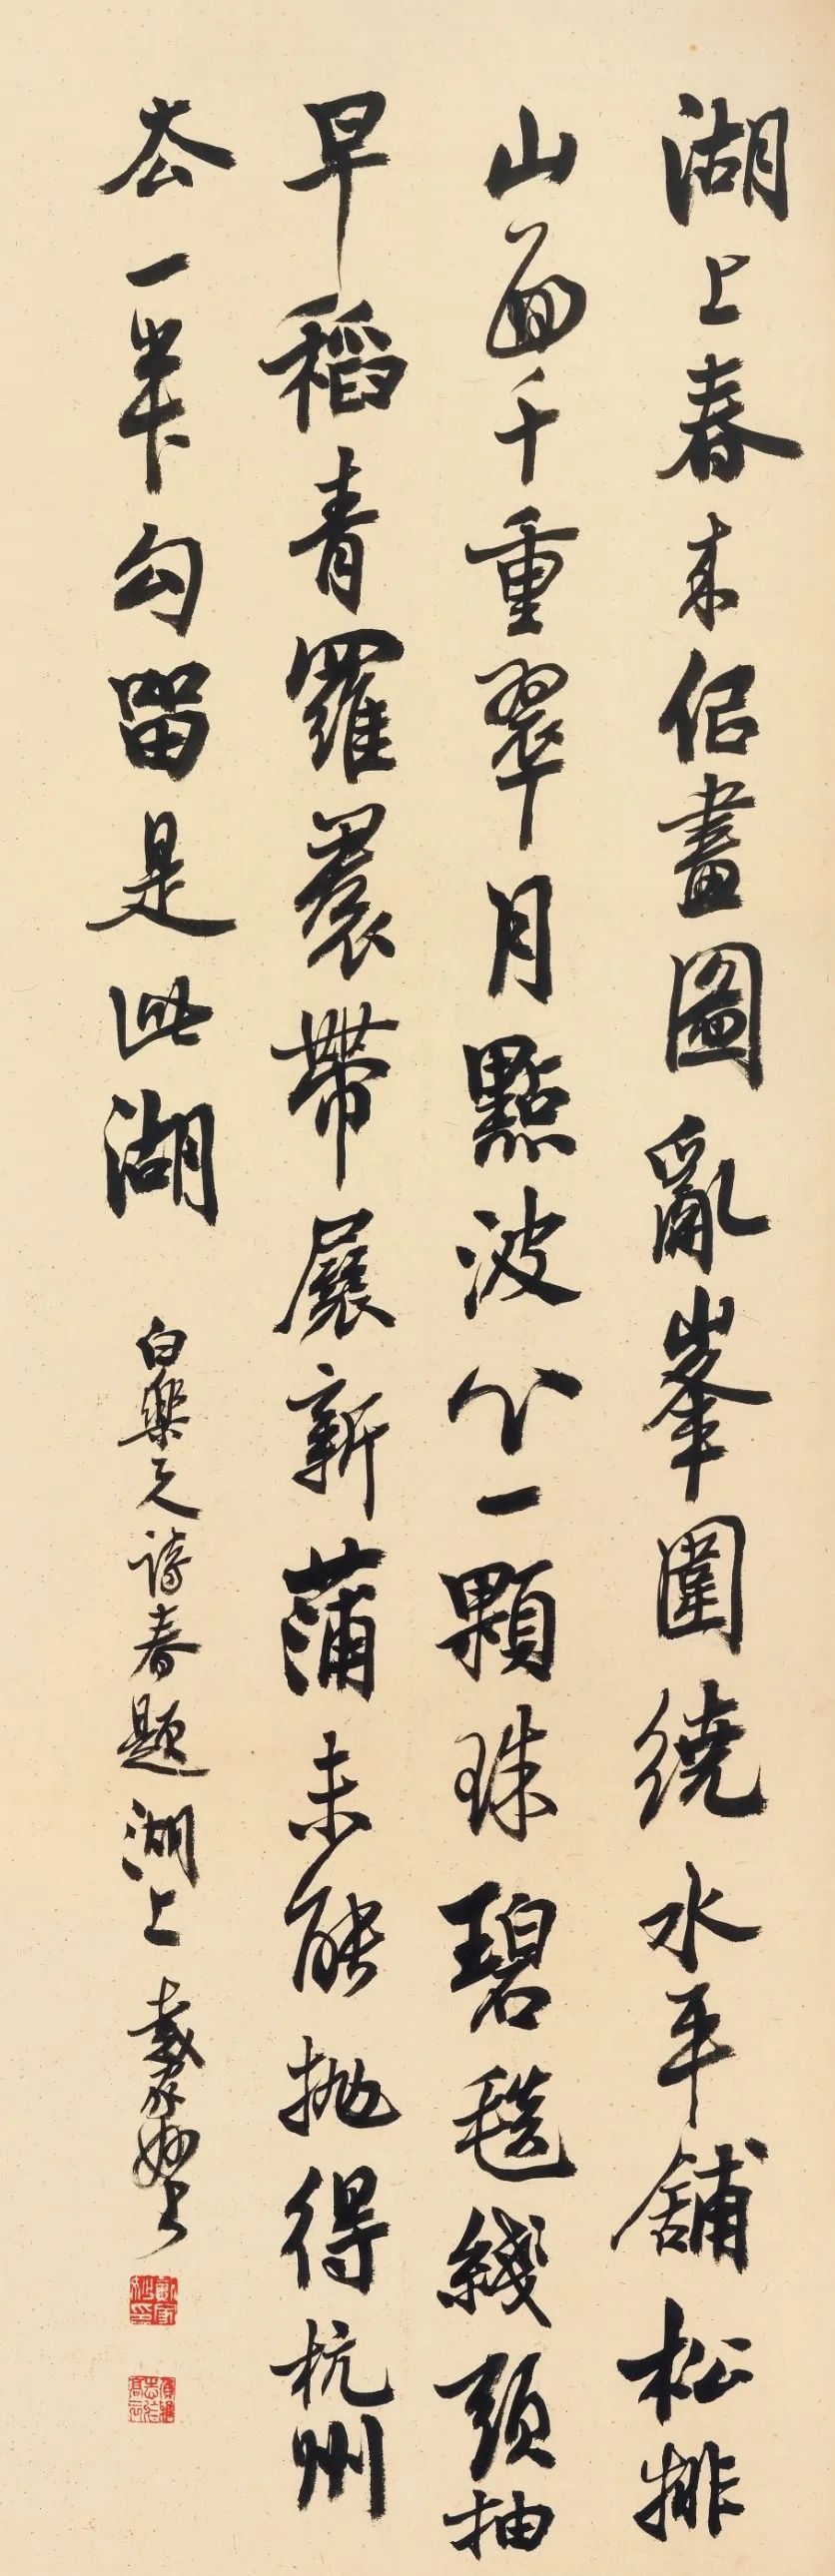 湖上春来佀畫圖亂峯圍繞水平舖松排
山面千重翠月點波心一顆珠碧毯綫頭抽
早稻青羅裠帶展新蒲未能抛得杭州
去一半勾留是此湖
白樂天詩春題湖上 戴家妙書